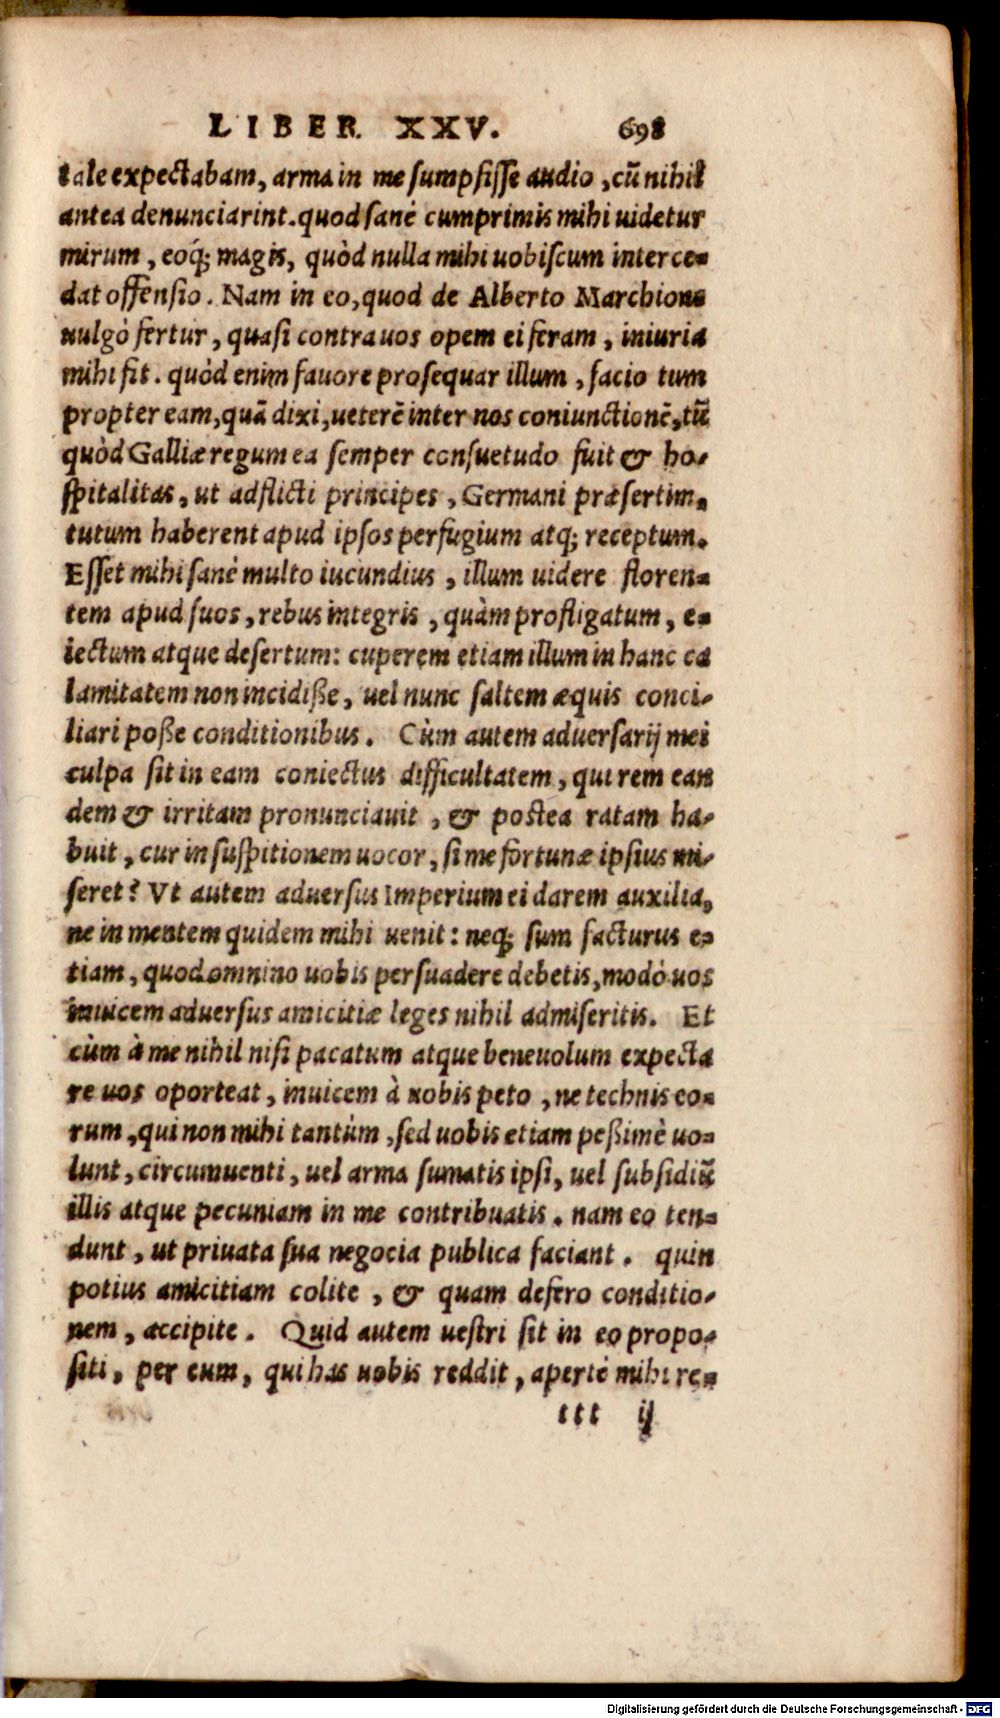 LIBER XXV. 698
tale expectabam, arma in me sumpsisse audio, cũ nihil
antea denunciarint. quod sanè cumprimis mihi uidetur
mirum, eoq́; magis, quòd nulla mihi uobiscum interce-
dat offensio. Nam in eo, quod de Alberto Marchione
uulgò fertur, quasi contra uos opem ei feram, iniuria
mihi fit. quòd enim fauore prosequar illum, facio tum
propter eam, quã dixi, ueterẽ inter nos coniunctionẽ, tũ
quòd Galliæ regum ea semper consuetudo fuit & ho-
spitalitas, ut adflicti principes, Germani præsertim,
tutum haberent apud ipsos perfugium atq; receptum.
Esset mihi sanè multo iucundius, illum uidere floren-
tem apud suos, rebus integris, quàm profligatum, e-
iectum atque desertum: cuperem etiam illum in hanc ca
lamitatem non incidiße, uel nunc saltem æquis conci-
liari poße conditionibus. Cùm autem aduersarij mei
culpa sit in eam coniectus difficultatem, qui rem ean
dem & irritam pronunciauit, & postea ratam ha-
buit, cur in suspitionem uocor, si me fortunæ ipsius mi-
seret? Vt autem aduersus Imperium ei darem auxilia,
ne in mentem quidem mihi uenit: neq; sum facturus e-
tiam, quod omnino uobis persuadere debetis, modò uos
inuicem aduersus amicitiæ leges nihil admiseritis. Et
cùm à me nihil nisi pacatum atque beneuolum expecta
re uos oporteat, inuicem à uobis peto, ne technis eo-
rum, qui non mihi tantùm, sed uobis etiam peßimè uo-
lunt, circumuenti, uel arma sumatis ipsi, uel subsidiũ
illis atque pecuniam in me contribuatis. nam eo ten-
dunt, ut priuata sua negocia publica faciant. quin
potius amicitiam colite, & quam defero conditio-
nem, accipite. Quid autem uestri sit in eo propo-
siti, per eum, qui has uobis reddit, apertè mihi re-
ttt ij
Digitalisierung gefördert durch die Deutsche Forschungsgemeinschaft - DFG